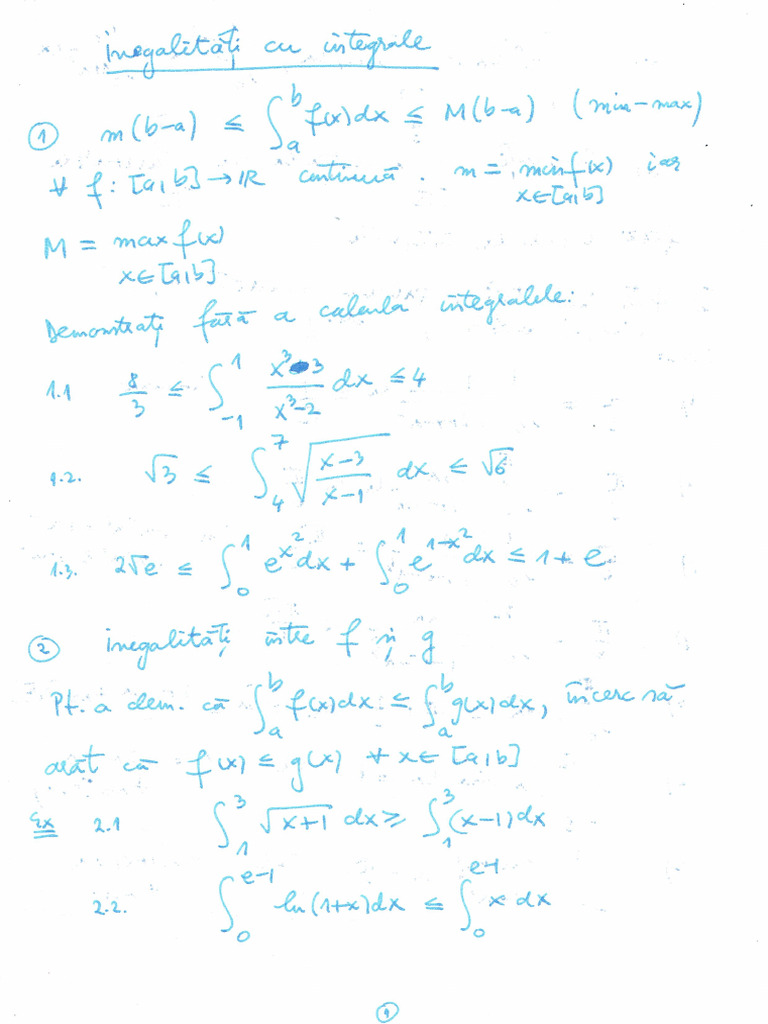 inegalități cu integrale
① m(b-a) ≤ ∫_a^b f(x)dx ≤ M(b-a) (min-max)
∀ f: [a,b] → ℝ continuă. m = min f(x) iar
x∈[a,b]
M = max f(x)
x∈[a,b]
Demonstrați fără a calcula integralele:
1.1 8/3 ≤ ∫_{-1}^1 (x³-3)/(x³-2) dx ≤ 4
1.2. √3 ≤ ∫_4^7 √((x-3)/(x-1)) dx ≤ √6
1.3. 2√e ≤ ∫_0^1 e^{x²}dx + ∫_0^1 e^{1-x²}dx ≤ 1+e
② inegalități între f și g
Pt. a dem. că ∫_a^b f(x)dx ≤ ∫_a^b g(x)dx, încerc să
arăt că f(x) ≤ g(x) ∀ x∈[a,b]
Ex 2.1 ∫_1^3 √(x+1) dx ≥ ∫_1^3 (x-1)dx
2.2. ∫_0^{e-1} ln(1+x)dx ≤ ∫_0^{e-1} x dx
①